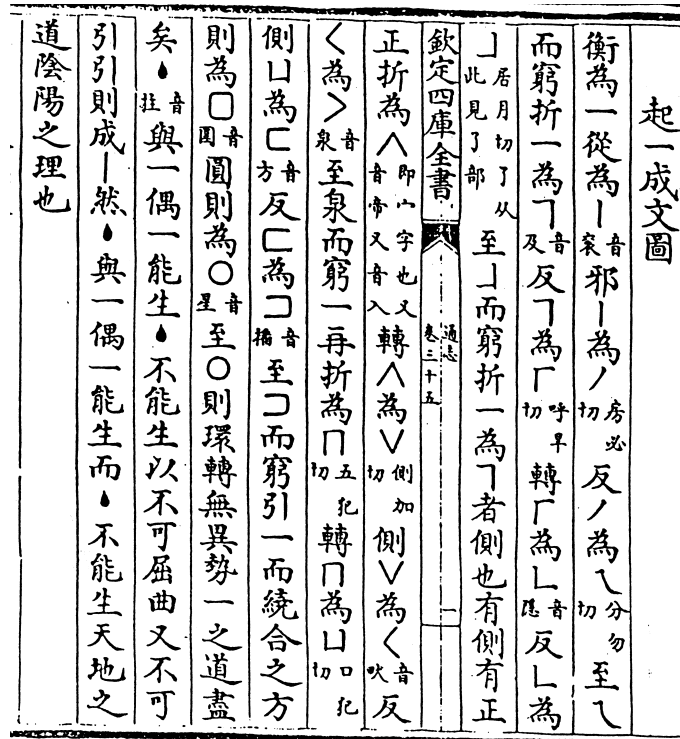 起一成文圖
衡為一從為丨音衮邪丨為丿房必切反丿為乀分勿切至乀
而窮折一為𠃍音及反𠃍為厂呼旱切轉厂為𠃊音隱反𠃊為
亅居月切了从此見了部至亅而窮折一為𠃍者側也有側有正
欽定四庫全書 通志 卷三十五 一
正折為∧即宀字也又音帝又音入轉∧為∨側加切側∨為く音吠反
く為＞音泉至泉而窮一再折為冂五犯切轉冂為凵口犯切
側凵為匚音方反匚為コ音播至コ而窮引一而繞合之方
則為囗音圍圓則為〇音星至〇則環轉無異勢一之道盡
矣丶音拄與一偶一能生丶不能生以不可屈曲又不可
引引則成丨然丶與一偶一能生而丶不能生天地之
道陰陽之理也